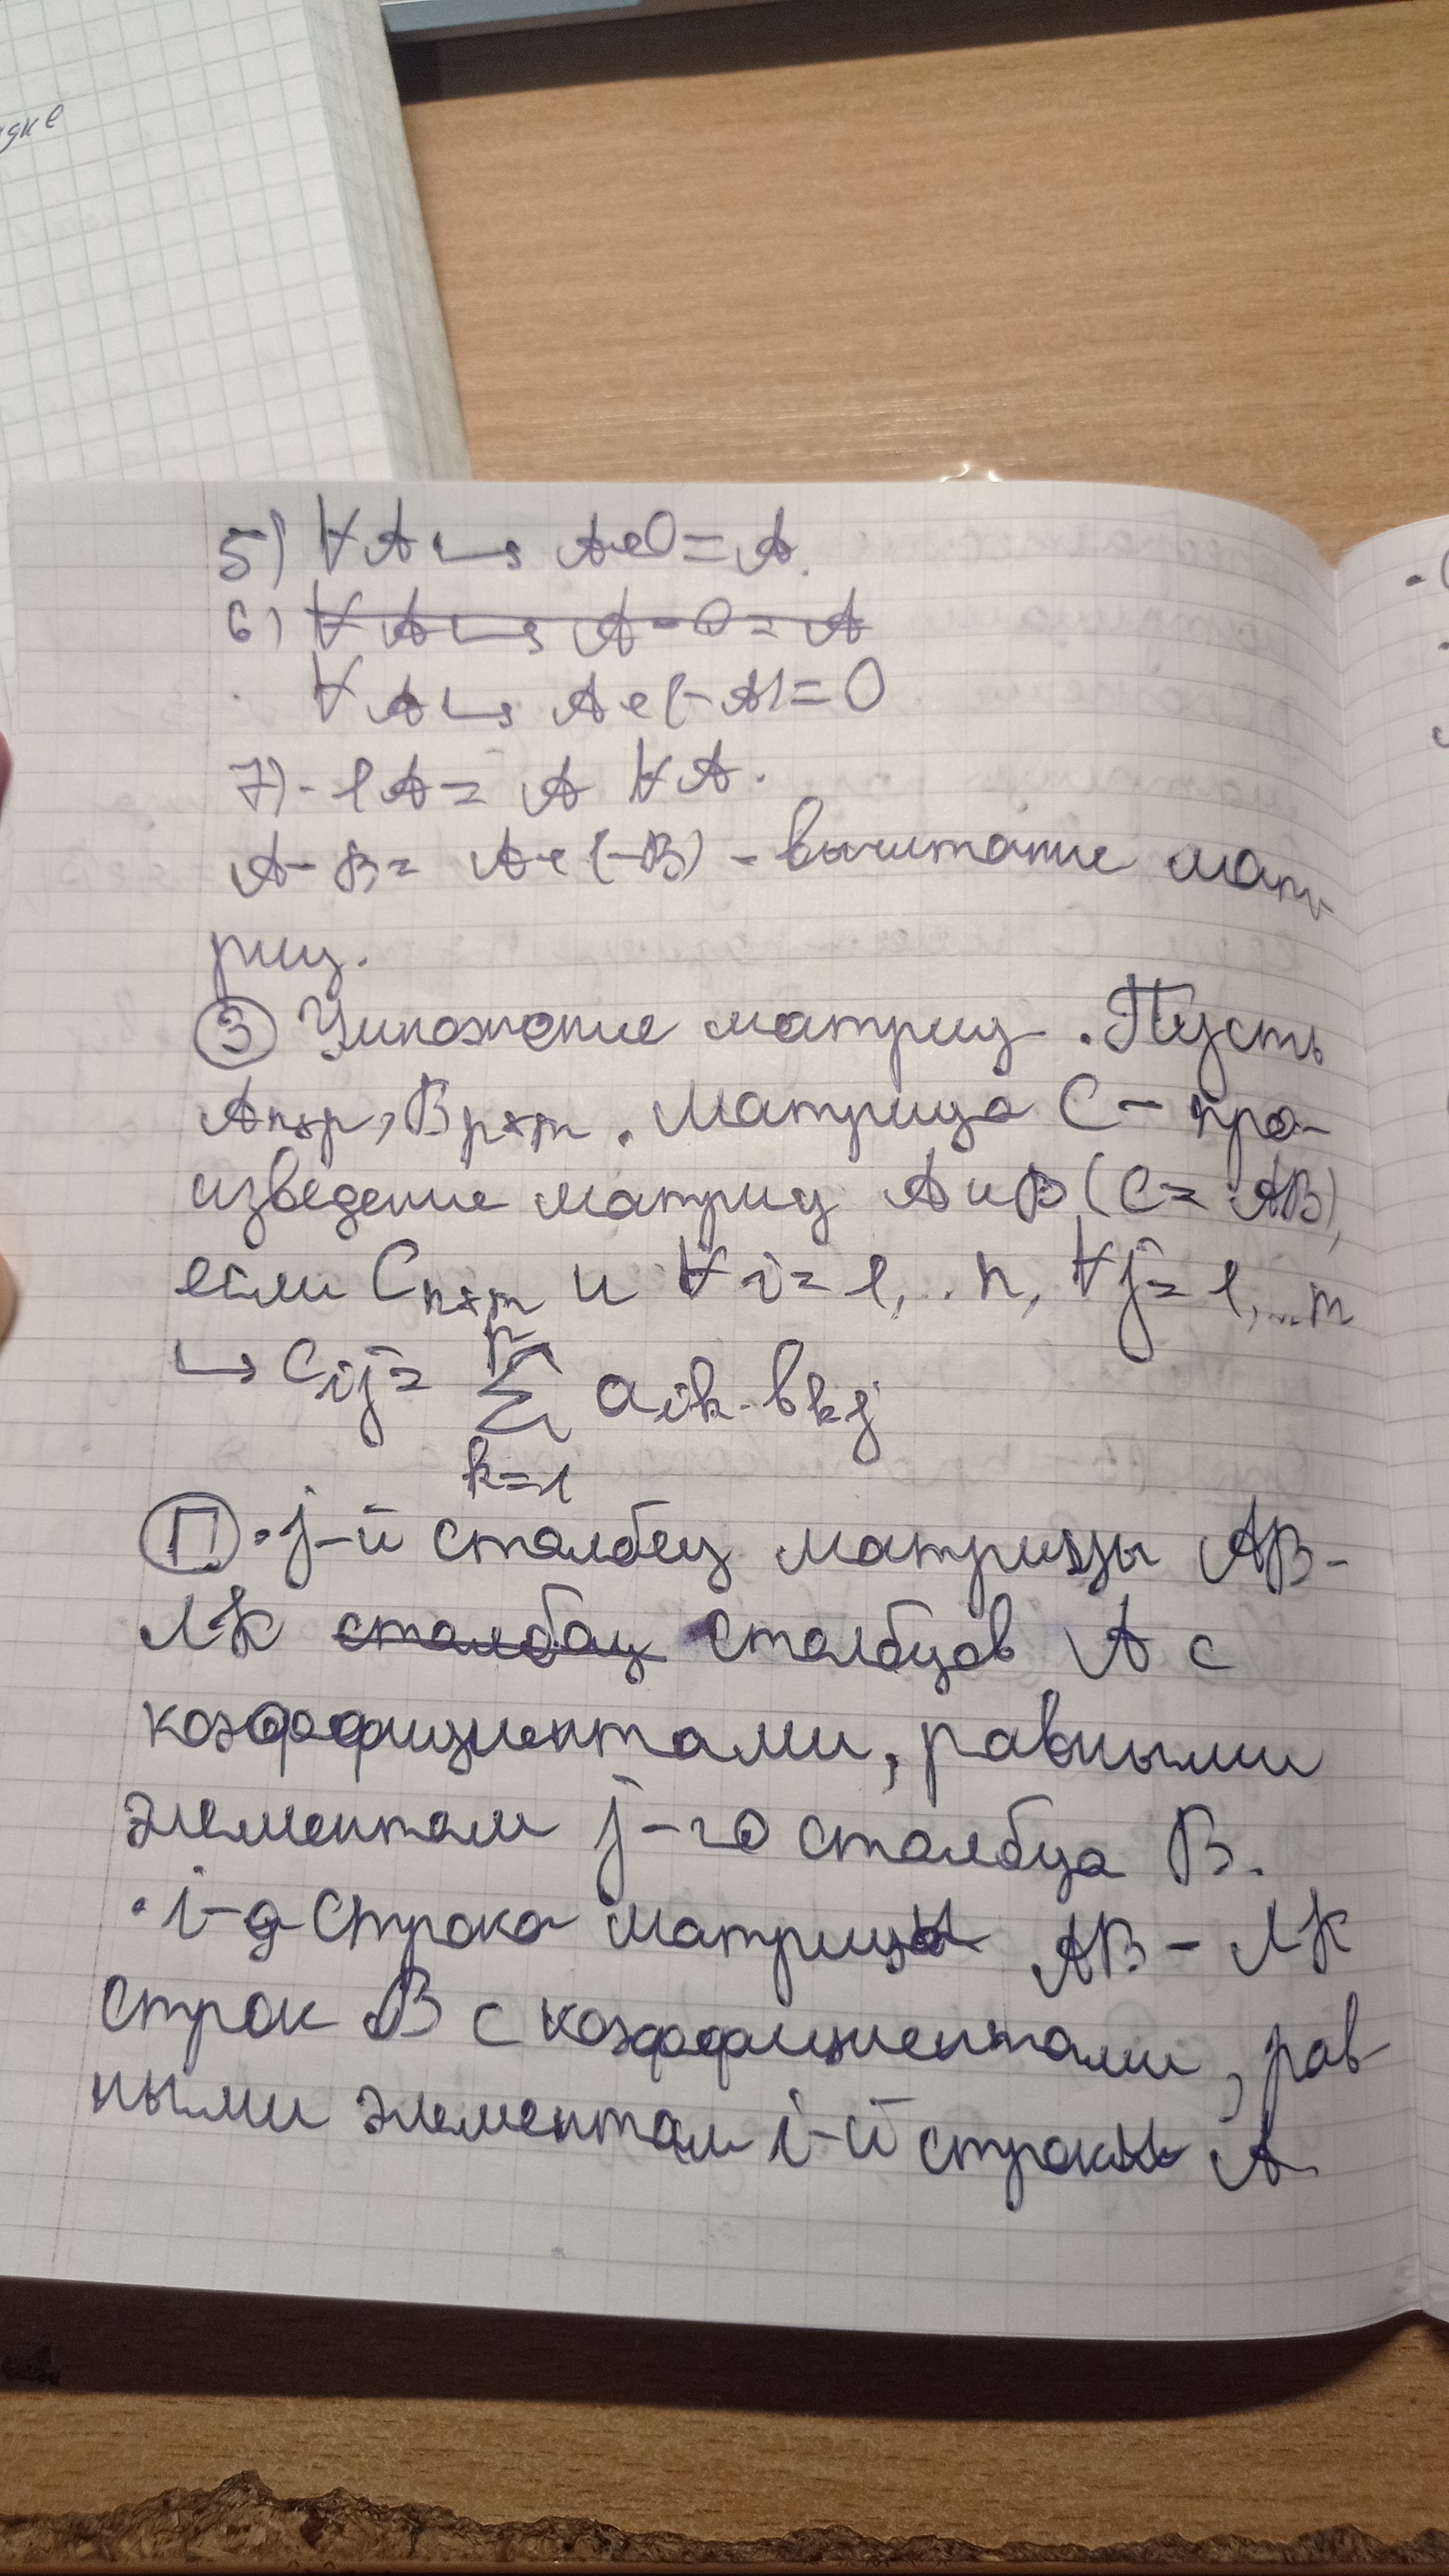 5) ∀A ↪ A+O=A.
6) ∀A ↪ A-O=A
∀A ↪ A+(-A)=O
7) · 1A = A ∀A.
A-B= A+(-B) - вычитание мат-
риц.
③ Умножение матриц. Пусть
Aₙₓₚ, Bₚₓₘ. Матрица C - про-
изведение матриц A и B (C = AB),
если Cₙₓₘ и ∀i=1,..n, ∀j=1,...m
↪ cᵢⱼ = ∑ₖ₌₁ᵖ aᵢₖ·bₖⱼ
П · j-й столбец матрицы AB-
ЛК столбац столбцов A с
коэффициентами, равными
элементам j-го столбца B.
· i-я строка матрицы AB - ЛК
строк B с коэффициентами, рав-
ными элементам i-й строки A